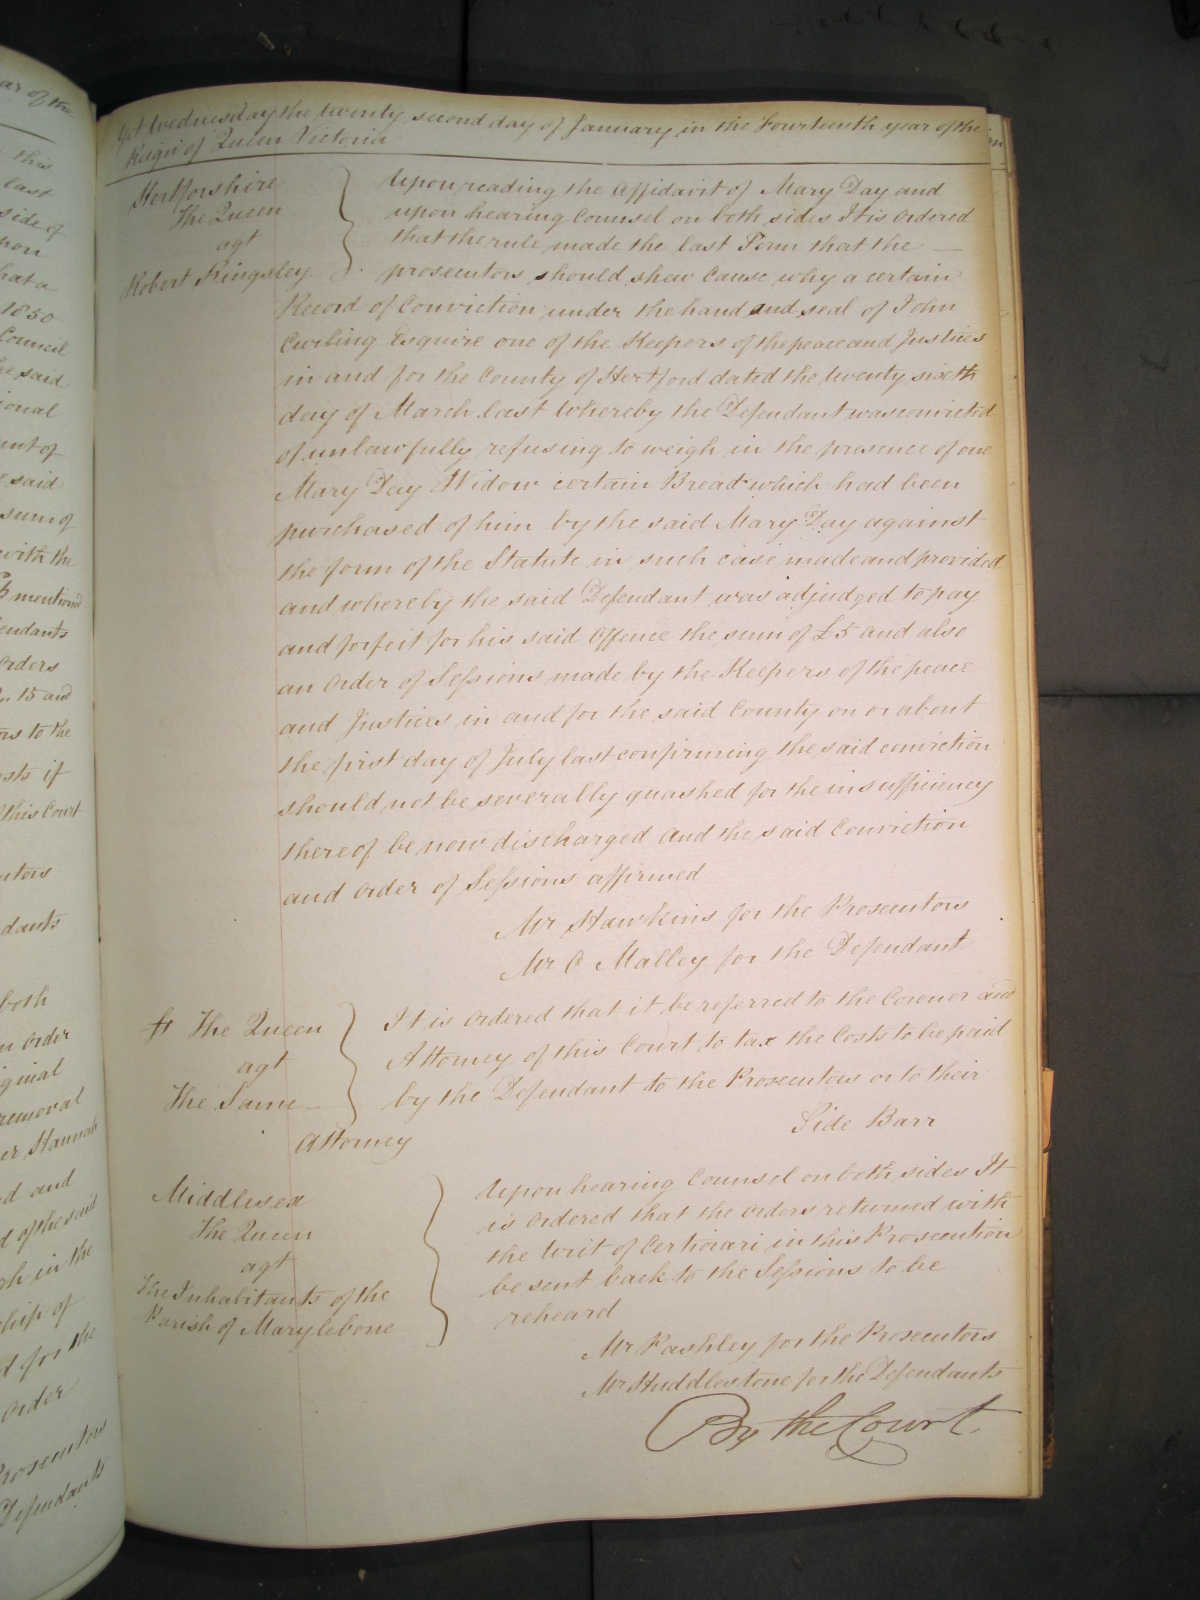 Yet Wednesday the twenty second day of January in the Fourteenth year of the
Reign of Queen Victoria
Hertforshire
The Queen
agt
Robert Kingsley
Upon reading the Affidavit of Mary Day and
upon hearing Counsel on both sides It is ordered
that the rule made the last Term that the
prosecutors should shew Cause why a certain
Record of Conviction under the hand and seal of John
Curling Esquire one of the Keepers of the peace and Justices
in and for the County of Hertford dated the twenty sixth
day of March last Whereby the Defendant was convicted
of unlawfully refusing to weigh in the presence of one
Mary Day Widow certain Bread which had been
purchased of him by the said Mary Day against
the form of the Statute in such case made and provided
and whereby the said Defendant was adjudged to pay
and forfeit for his said Offence the sum of £5 and also
an Order of Sessions made by the Keepers of the peace
and Justices in and for the said County on or about
the first day of July last confirming the said conviction
should not be severally quashed for the insufficiency
thereof be now discharged and the said Conviction
and Order of Sessions affirmed
Mr Hawkins for the Prosecutors
Mr O Malley for the Defendant
The Queen
agt
The Same
It is Ordered that it be referred to the Coroner and
Attorney of this Court to tax the Costs to be paid
by the Defendant to the Prosecutors or to their
Attorney
Side Barr
Middlesex
The Queen
agt
The Inhabitants of the
Parish of Marylebone
Upon hearing Counsel on both sides It
is Ordered that the orders returned with
the Writ of Certiorari in this Prosecution
be sent back to the Sessions to be
reheard
Mr Pashley for the Prosecutors
Mr Huddlestone for the Defendants
By the Court
ar of the
this
last
side of
upon
hat a
1850
Council
he said
ional
ent of
said
sum of
with the
mentioned
endants
orders
15 and
to the
sts if
this Court
utors
dants
both
an order
iginal
removal
er Hannah
d and
d of the said
gh in the
ship of
d for the
order
Prosecutors
Defendants